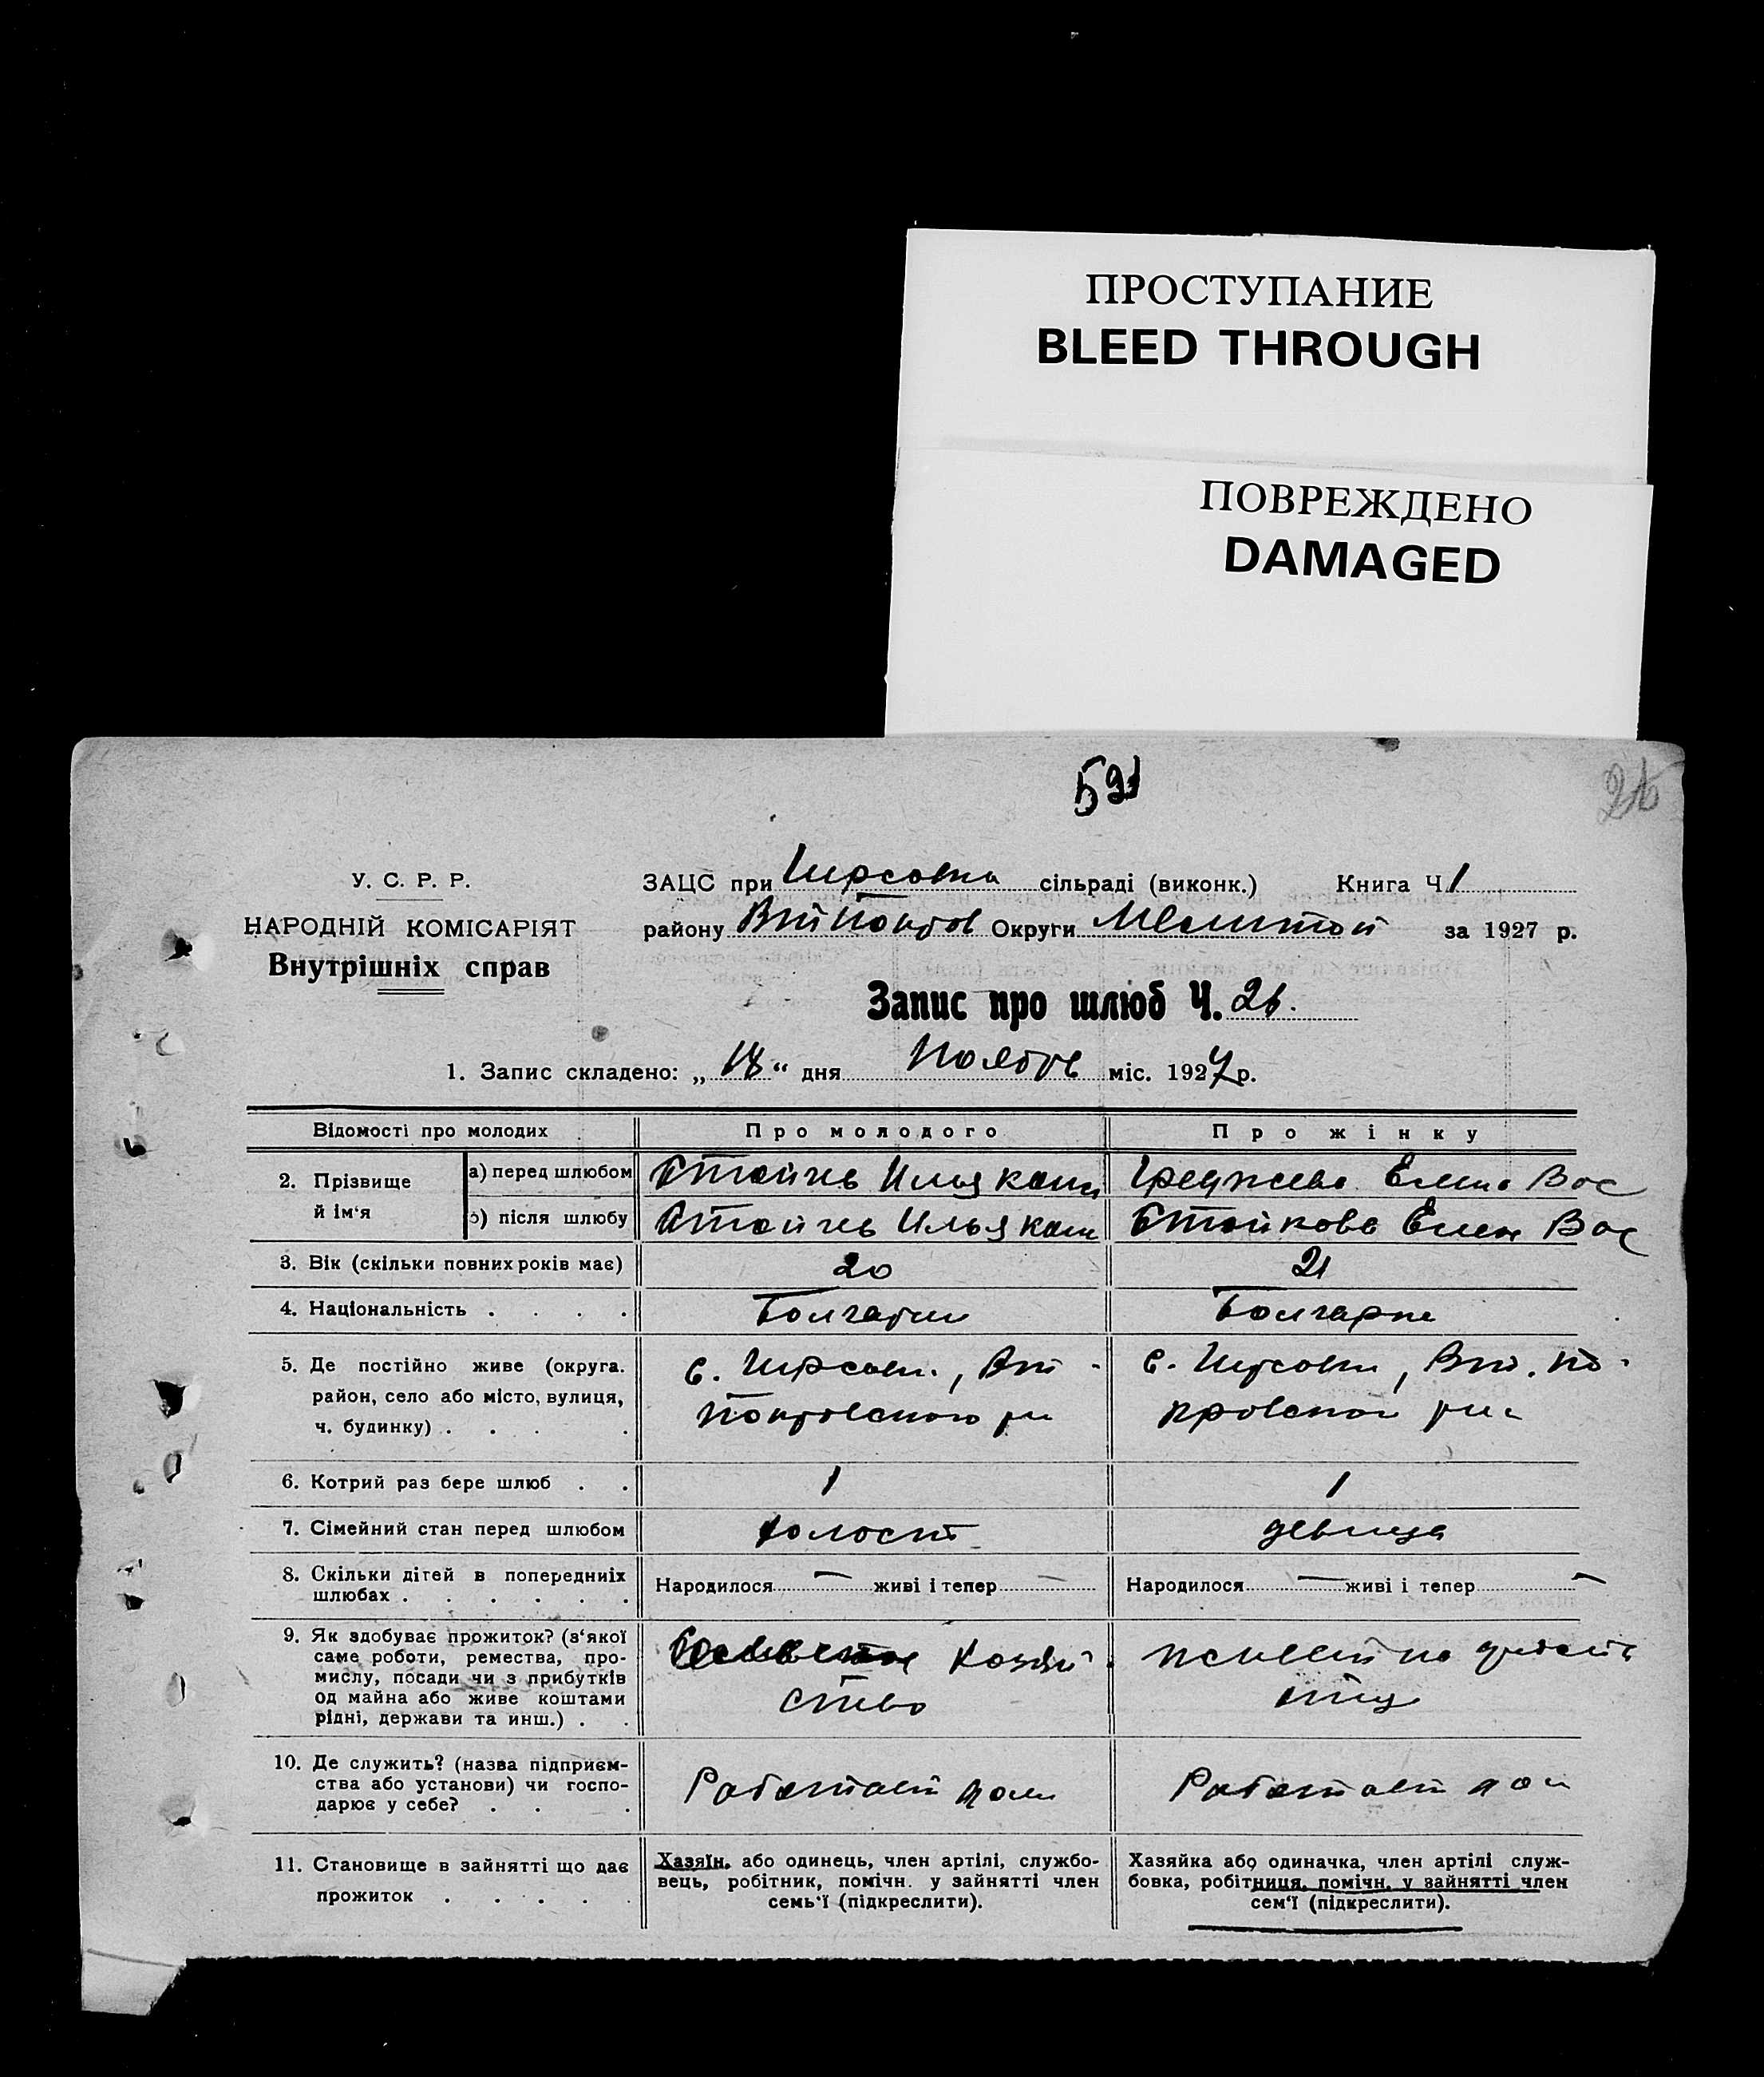 ПРОСТУПАНИЕ
BLEED THROUGH
ПОВРЕЖДЕНО
DAMAGED
У. С. Р. Р.
НАРОДНІЙ КОМІСАРІЯТ
Внутрішніх справ
ЗАЦС при сільраді (виконк.) Книга Ч. 1
району Округи за 1927 р.
Запис про шлюб Ч. 26.
1. Запис складено: „18“ дня Ноября міс. 1927 р.
Відомості про молодих Про молодого Про жінку
2. Прізвище й ім‘я
а) перед шлюбом Илья Елена Вас
б) після шлюбу Илья Стойкова Елен Вас
3. Вік (скільки повних років має) 20 21
4. Національність . . . . Болгарин Болгарка
5. Де постійно живе (округа.
район, село або місто, вулиця,
ч. будинку) . . . .
с.
Покровского
с.
6. Котрий раз бере шлюб . . 1 1
7. Сімейний стан перед шлюбом холост девица
8. Скільки дітей в попередніх
шлюбах . . . . . .
Народилося — живі і тепер —
Народилося — живі і тепер —
9. Як здобуває прожиток? (з‘якої
саме роботи, ремества, про-
мислу, посади чи з прибутків
од майна або живе коштами
рідні, держави та инш.) . .
Хозяй
ство
10. Де служить? (назва підприєм-
ства або установи) чи госпо-
дарює у себе? . . .
Работает дом
Работает дом
11. Становище в зайнятті що дає
прожиток . . . . .
Хазяїн, або одинець, член артілі, службо-
вець, робітник, помічн. у зайнятті член
семь‘ї (підкреслити).
Хазяйка або одиначка, член артілі служ-
бовка, робітниця, помічн. у зайнятті член
сем‘ї (підкреслити).